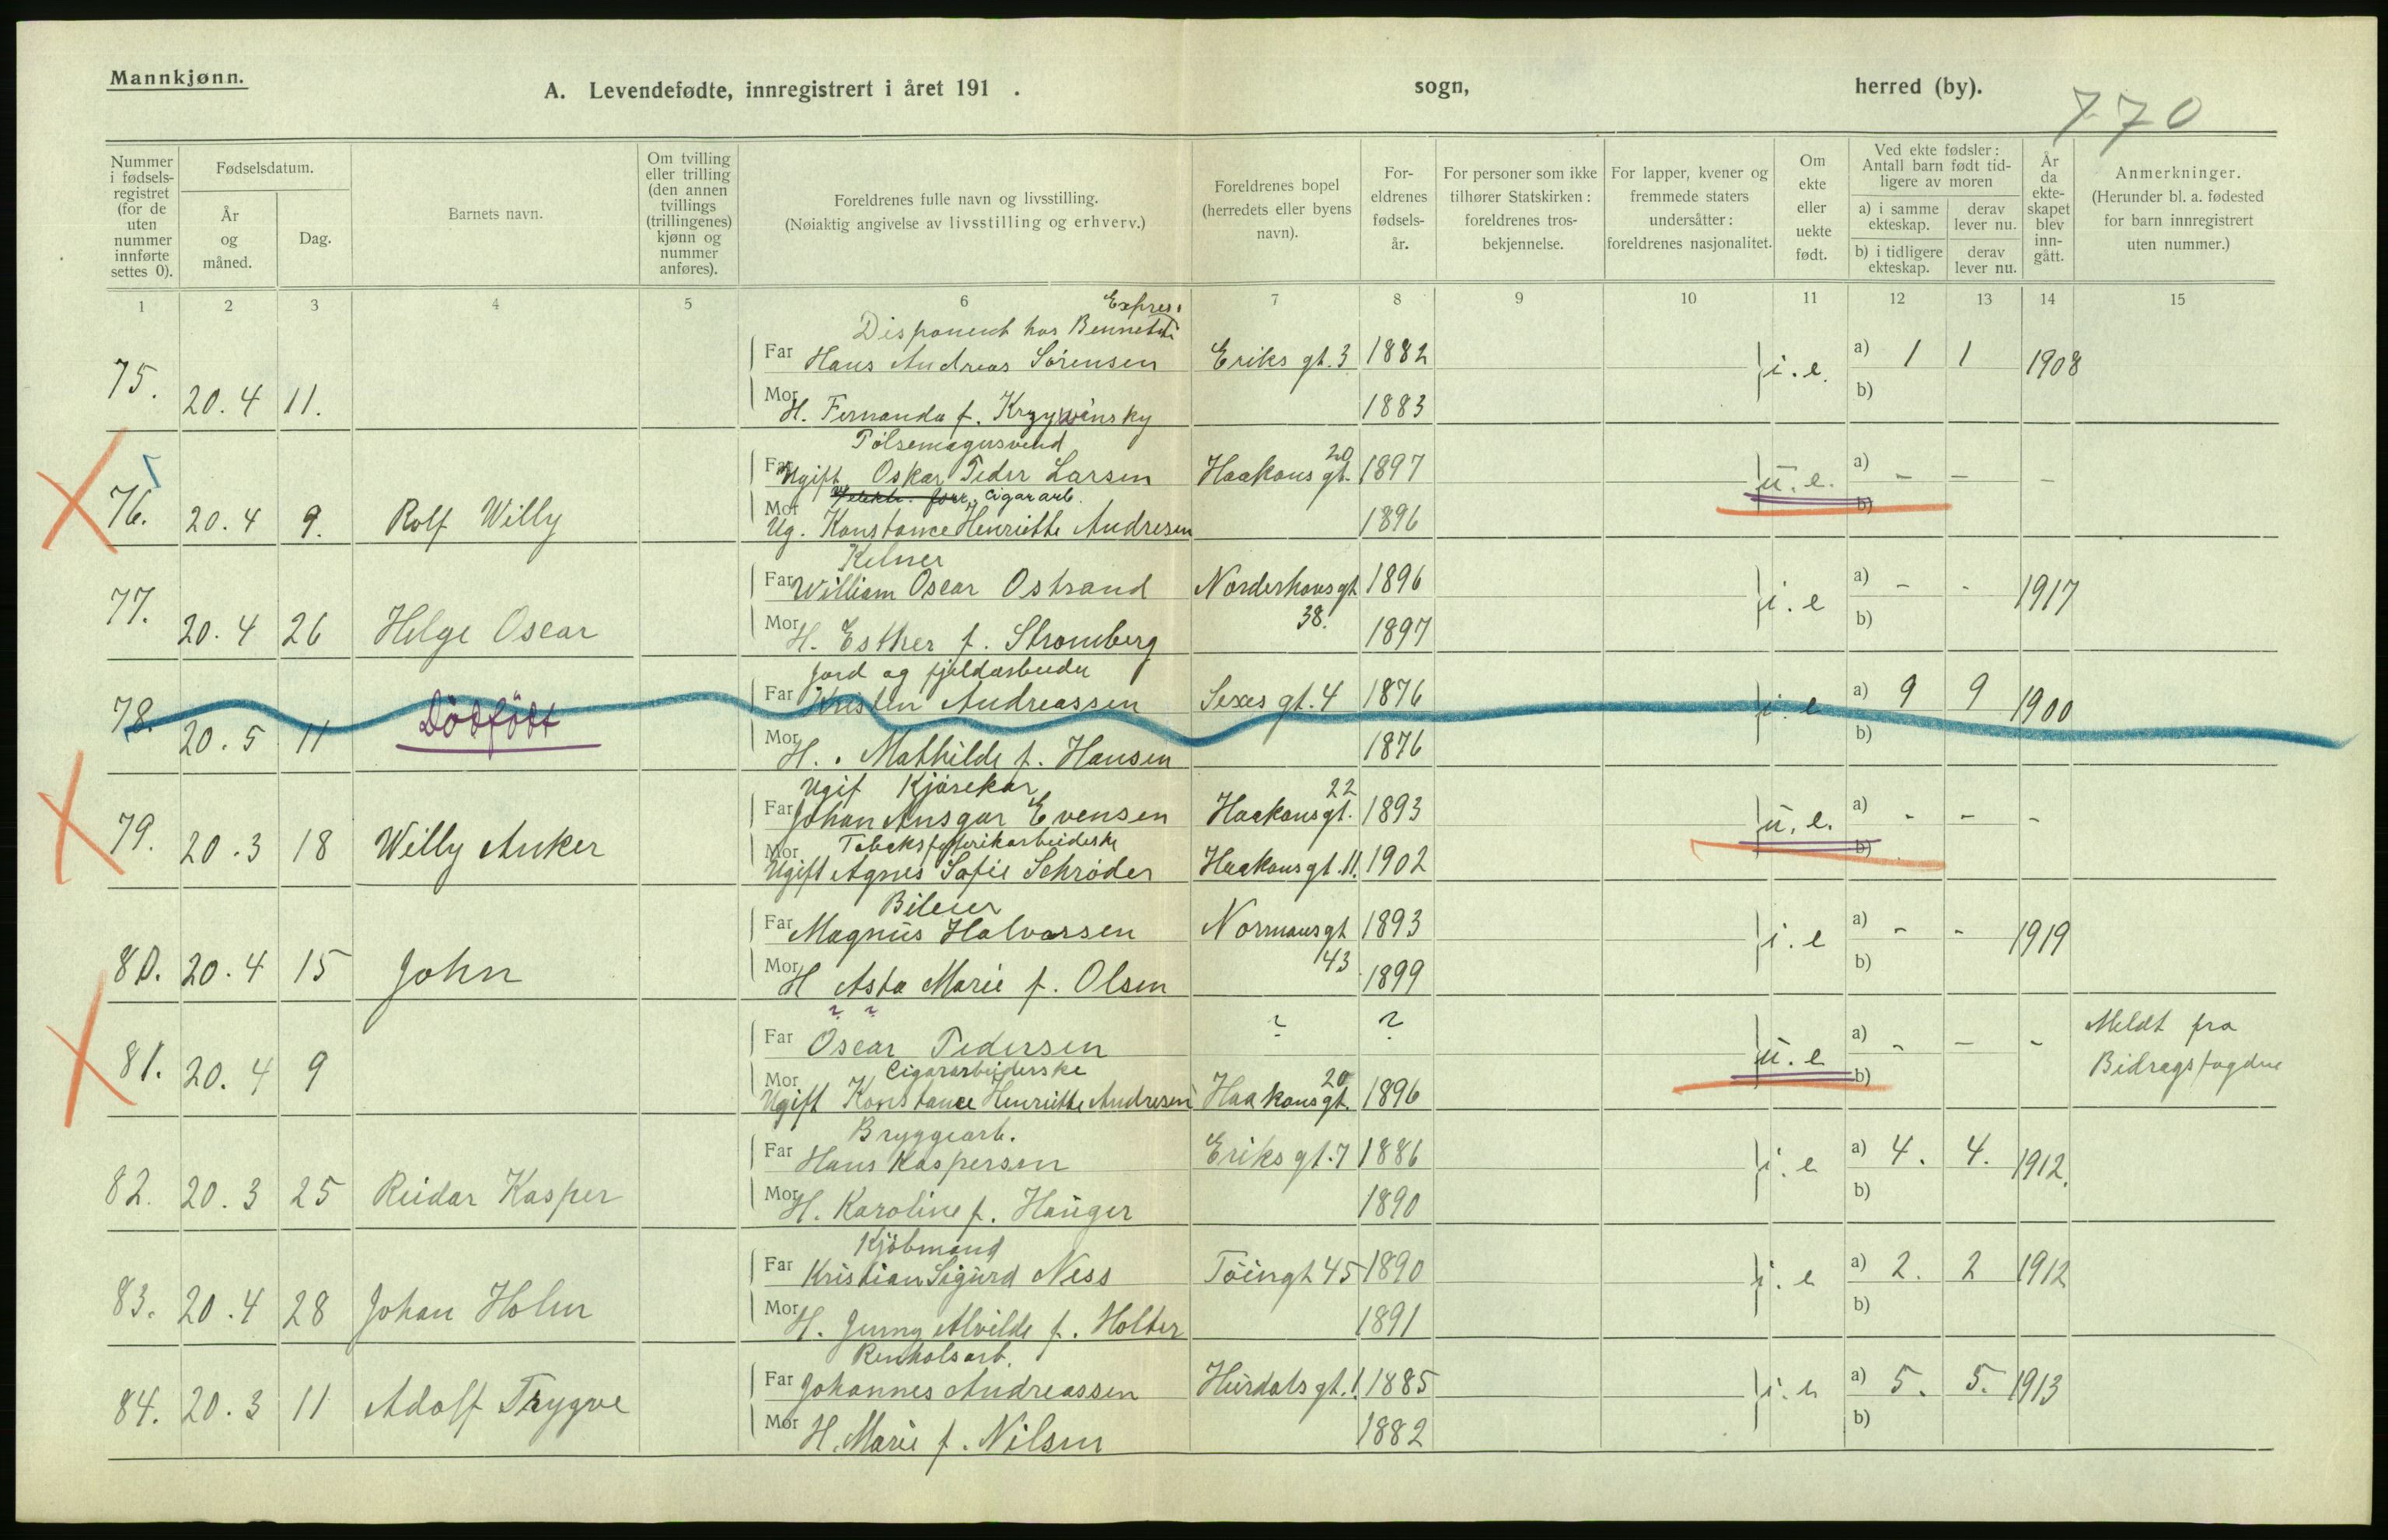 Mannkjønn.
A. Levendefødte, innregistrert i året 191 . sogn, herred (by).
770
Nummer i fødselsregistret (for de uten nummer innførte settes 0).
Fødselsdatum.
År og måned.
Dag.
Barnets navn.
Om tvilling eller trilling (den annen tvillings (trillingenes) kjønn og nummer anføres).
Foreldrenes fulle navn og livsstilling.
(Nøiaktig angivelse av livsstilling og erhverv.)
Foreldrenes bopel (herredets eller byens navn).
Foreldrenes fødselsår.
For personer som ikke tilhører Statskirken: foreldrenes trosbekjennelse.
For lapper, kvener og fremmede staters undersåtter: foreldrenes nasjonalitet.
Om ekte eller uekte født.
Ved ekte fødsler: Antall barn født tidligere av moren
a) i samme ekteskap.
derav lever nu.
b) i tidligere ekteskap.
derav lever nu.
År da ekteskapet blev inngått.
Anmerkninger.
(Herunder bl. a. fødested for barn innregistrert uten nummer.)
1 2 3 4 5 6 7 8 9 10 11 12 13 14 15
Expres.
Disponent hos Bennets
Far Hans Andreas Sörensen Eriks gt. 3 1882 i. e. a) 1 1 1908
75. 20. 4 11. Mor H. Fernanda f. Krzywinsky 1883 b)
Pölsemagersvend
Far Ugift Oskar Peder Larsen Haakons gt. 20 1897 u. e. a) - - -
cigararb.
76. 20. 4 9. Rolf Willy Mor Ug. Konstance Henriette Andresen 1896 b)
Kelner
Far William Oscar Ostrand Norderhovsgt 38. 1896 i. e a) - - 1917
77. 20. 4 26 Helge Oscar Mor H. Esther f. Stromberg 1897 b)
Jord og fjeldarbeider
Far Kristen Andreassen Sexes gt. 4 1876 i. e a) 9 9 1900
78. 20. 5 11 Dödfödt Mor H. Mathilde f. Hansen 1876 b)
Ugif Kjörekar
Far Johan Ansgar Evensen Haakonsgt. 22 1893 u. e. a) - - -
Tobaksfabrikarbeiderske
79. 20. 3 18 Willy Anker Mor Ugift Agnes Sofie Schröder Haakonsgt. 11. 1902 b)
Bileier
Far Magnus Halvorsen Normansgt 43 1893 i. e a) - - 1919
80. 20. 4 15 John Mor H Asta Marie f. Olsen 1899 b)
? ?
Far Oscar Pedersen ? ? u. e a) - - - Meldt fra Bidragsfogden
Cigararbeiderske
81. 20. 4 9 Mor Ugift Konstance Henriette Andresen Haakonsgt. 20 1896 b)
Bryggearb.
Far Hans Kaspersen Eriks gt. 7 1886 i. e a) 4. 4. 1912.
82. 20. 3 25 Reidar Kasper Mor H. Karoline f. Hauger 1890 b)
Kjöbmand
Far Kristian Sigurd Ness Töingt 45 1890 i. e a) 2. 2 1912
83. 20. 4 28 Johan Holm Mor H. Jenny Alvilde f. Holter 1891 b)
Renholsarb.
Far Johannes Andreassen Hurdals gt. 1. 1885 i. e a) 5. 5. 1913
84. 20. 3 11 Adolf Trygve Mor H. Marie f. Nilsen 1882 b)